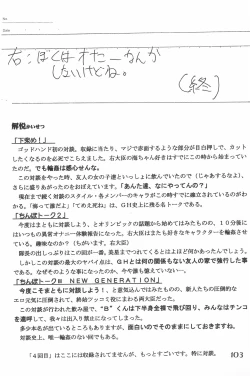 No.
Date
右：ぼくはオナニーかんか
しないけどね。
（終）
解説かいせつ
『下克め！』
ゴッドハンド初の対談。収録に当たり、マジで赤面するような部分が目白押しで、カット
したくなるのを必死でこらえました。右大臣の海ちゃん好きはすでにこの時から始まってい
たのだ。でも輪姦は感心せんな。
この対談をやった時、友人の女の子達といっしょに飲んでいたので（じゃあするなよ）、
さらに盛りあがったのをおぼえています。「あんた達、なにやってんの？」
現在まで続く対談のスタイル・各メンバーのキャラがこの時すでに確立されているのがわ
かる。「揉って誰だよ」「てめえ死ね」は、ＧＨ史上に残る名トークである。
『ちんぽトーク２』
今度はまともに対談しよう、とオリンピックの話題から始めてはみたものの、１０分後に
はいつもの異常オナニー体験報告になった。右大臣はまたも好きなキャラクターを輪姦させ
ている。趣味なのか？（ちがいます。右大臣）
しかしこの対談の最大のヤバイ点は、ＧＨとは何の関係もない友人の家で強行した事
である。なぜそのような事になったのか、今や誰も憶えていない…。
『ちんぽトークⅢ　ＮＥＷ　ＧＥＮＥＲＡＴＩＯＮ』
今度こそまともに対談しよう！、と意気込んではみたものの、新人たちの圧倒的な
エロ元気に圧倒されて、終始ツッコミ役にまわる両大臣だった。
この対談が行われた飲み屋で、“Ｂ”くんは下半身全裸で飛び回り、みんなはチンコ
を連呼して、我々は出入り禁止になってしまった。
多少本名が出ているところもありますが、面白いのでそのままにしておきますね。
対談史上、唯一の輪姦のない回でもある。
「４回目」はここには収録されてませんが、もっとすごいです。特に対談。
103